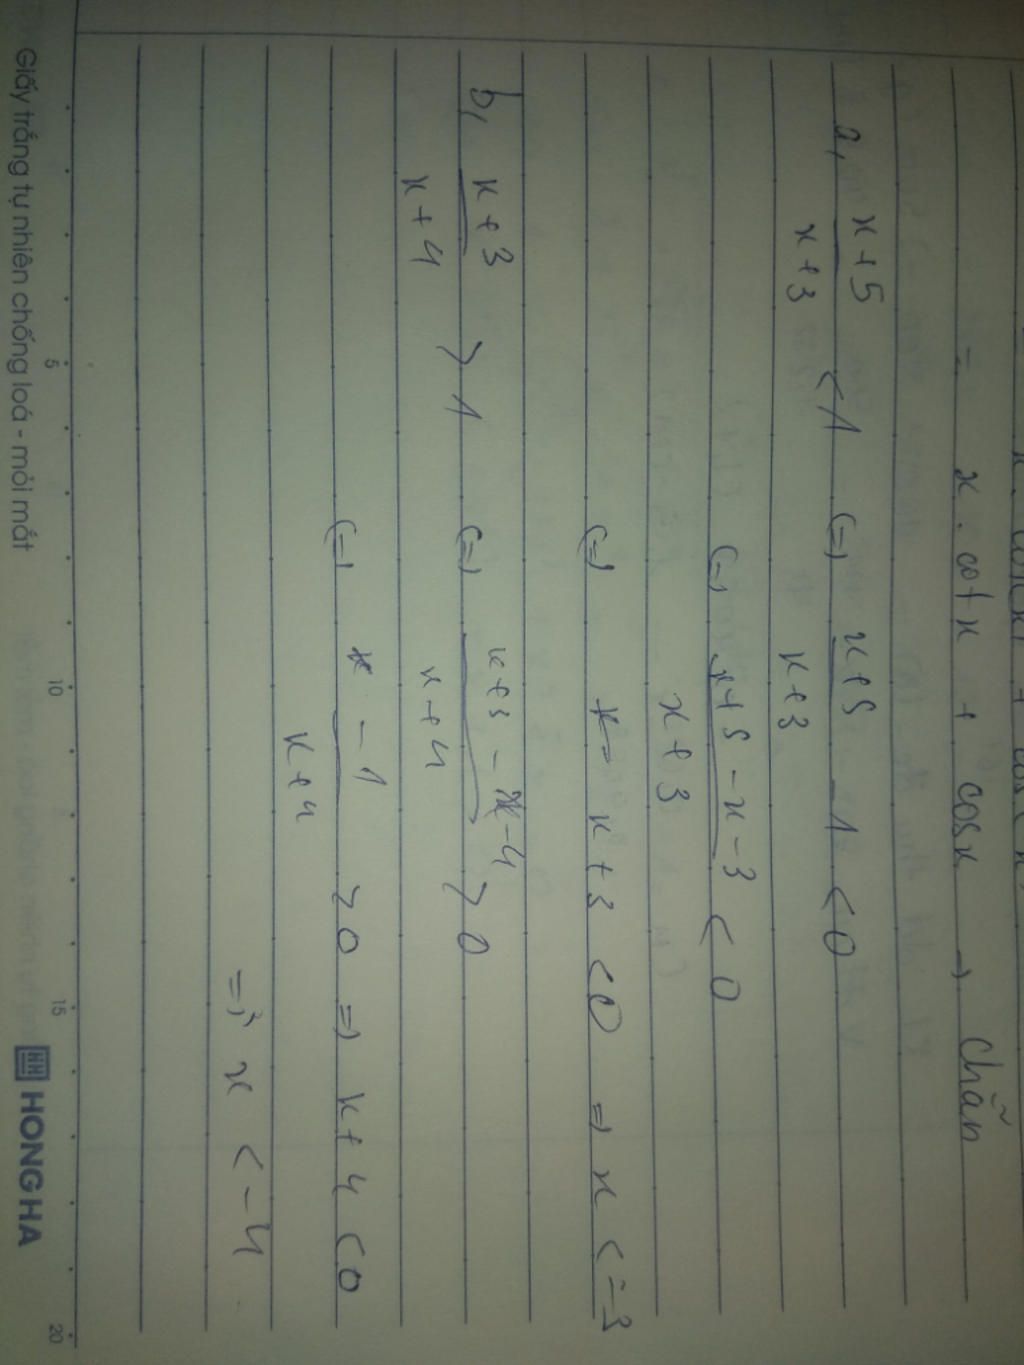 = x. cotx + cosx → chẵn
a, x+5 / x+3 < 1 (=) x+5 / x+3 - 1 < 0
(=) x+5-x-3 / x+3 < 0
(=) x+3 < 0 => x < -3
b, x+3 / x+4 > 1 (=) x+3-x-4 / x+4 > 0
(=) -1 / x+4 > 0 => x+4 < 0
=> x < -4
5 10 15 20
Giấy trắng tự nhiên chống loá - mỏi mắt HONG HA